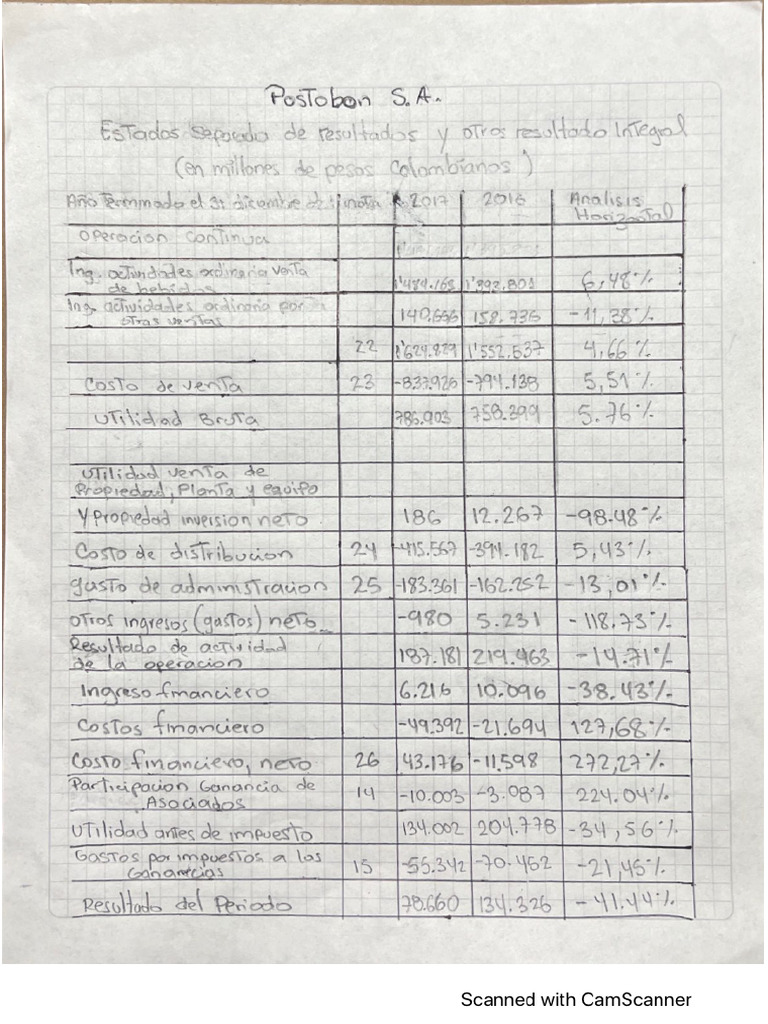 Postobon S.A.
Estados Separado de resultados y otros resultado Integral
(en millones de pesos Colombianos)
Año Terminado el 31 diciembre de nota 2017 2016 Analisis Horizontal
operacion continua
Ing. actividades ordinaria venta de bebidas 1'484.163 1'392.801 6,48%
Ing. actividades ordinaria por otras ventas 140.666 158.736 -11,38%
22 1'624.829 1'552.537 4,66%
Costo de venta 23 -837.926 -794.138 5,51%
Utilidad Bruta 786.903 758.399 5.76%
Utilidad venta de Propiedad, Planta y equipo
y Propiedad inversion neto 186 12.267 -98.48%
Costo de distribucion 24 -415.567 -394.182 5,43%
gasto de administracion 25 -183.361 -162.252 -13,01%
otros ingresos (gastos) neto -980 5.231 -118.73%
Resultado de actividad de la operacion 187.181 219.463 -14.71%
Ingreso financiero 6.216 10.096 -38.43%
Costos financiero -49.392 -21.694 127,68%
Costo financiero, neto 26 43.176 -11.598 272,27%
Participacion Ganancia de Asociados 14 -10.003 -3.087 224.04%
Utilidad antes de impuesto 134.002 204.778 -34,56%
Gastos por impuestos a las Ganancias 15 -55.342 -70.452 -21,45%
Resultado del Periodo 78.660 134.326 -41.44%
Scanned with CamScanner